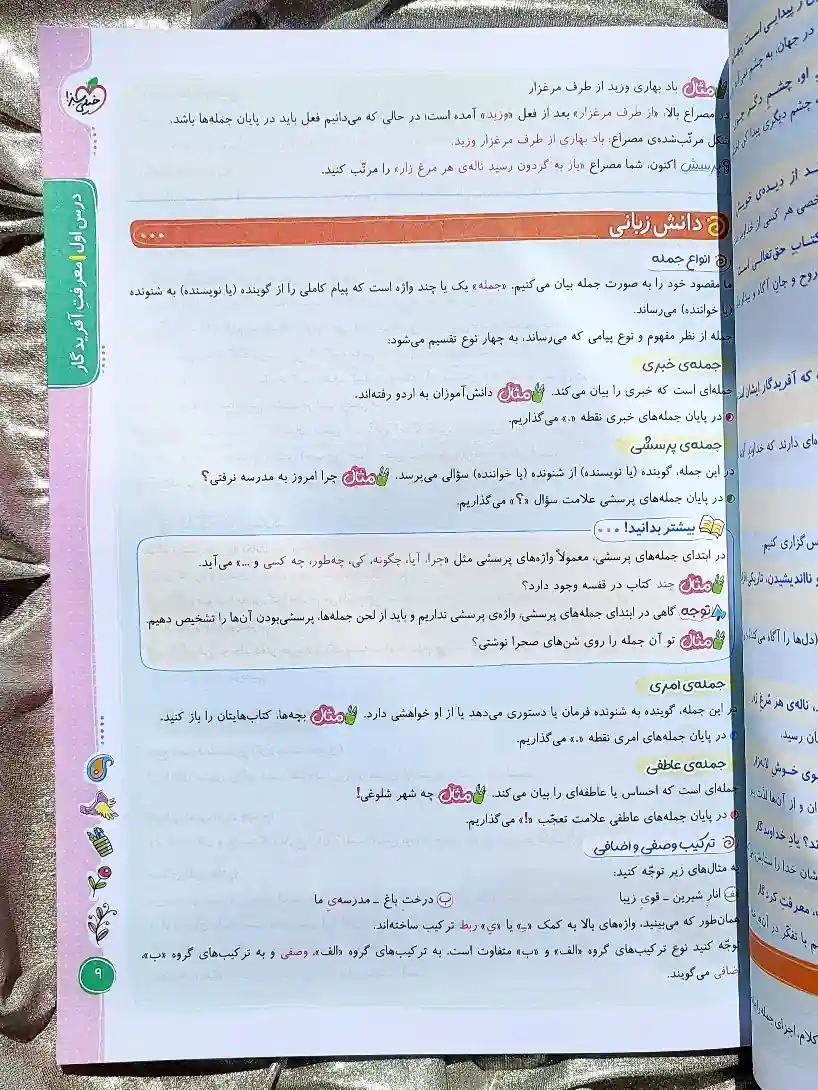 مثال باد بهاری وزید از طرف مرغزار
در مصراع بالا، «از طرف مرغزار» بعد از فعل «وزید» آمده است؛ در حالی که می‌دانیم فعل باید در پایان جمله‌ها باشد.
شکل مرتّب‌شده‌ی مصراع: باد بهاری از طرف مرغزار وزید.
پرسش اکنون، شما مصراع «باز به گردون رسید ناله‌ی هر مرغ زار» را مرتّب کنید.
دانش زبانی
انواع جمله
ما مقصود خود را به صورت جمله بیان می‌کنیم. «جمله» یک یا چند واژه است که پیام کاملی را از گوینده (یا نویسنده) به شنونده
(یا خواننده) می‌رساند.
جمله از نظر مفهوم و نوع پیامی که می‌رساند، به چهار نوع تقسیم می‌شود:
جمله‌ی خبری
جمله‌ای است که خبری را بیان می‌کند. مثال دانش‌آموزان به اردو رفته‌اند.
در پایان جمله‌های خبری نقطه «.» می‌گذاریم.
جمله‌ی پرسشی
در این جمله، گوینده (یا نویسنده) از شنونده (یا خواننده) سؤالی می‌پرسد. مثال چرا امروز به مدرسه نرفتی؟
در پایان جمله‌های پرسشی علامت سؤال «؟» می‌گذاریم.
بیشتر بدانید!
در ابتدای جمله‌های پرسشی، معمولاً واژه‌های پرسشی مثل «چرا، آیا، چگونه، کی، چه‌طور، چه کسی و ...» می‌آید.
مثال چند کتاب در قفسه وجود دارد؟
توجه گاهی در ابتدای جمله‌های پرسشی، واژه‌ی پرسشی نداریم و باید از لحن جمله‌ها، پرسشی‌بودن آن‌ها را تشخیص دهیم.
مثال تو آن جمله را روی شن‌های صحرا نوشتی؟
جمله‌ی امری
در این جمله، گوینده به شنونده فرمان یا دستوری می‌دهد یا از او خواهشی دارد. مثال بچه‌ها، کتاب‌هایتان را باز کنید.
در پایان جمله‌های امری نقطه «.» می‌گذاریم.
جمله‌ی عاطفی
جمله‌ای است که احساس یا عاطفه‌ای را بیان می‌کند. مثال چه شهر شلوغی!
در پایان جمله‌های عاطفی علامت تعجّب «!» می‌گذاریم.
ترکیب وصفی و اضافی
به مثال‌های زیر توجّه کنید:
الف انارِ شیرین ـ قویِ زیبا ب درختِ باغ ـ مدرسه‌یِ ما
همان‌طور که می‌بینید، واژه‌های بالا به کمک «ـِ» یا «یِ» ربط ترکیب ساخته‌اند.
توجّه کنید نوع ترکیب‌های گروه «الف» و «ب» متفاوت است، به ترکیب‌های گروه «الف»، وصفی و به ترکیب‌های گروه «ب»،
اضافی می‌گویند.
خیلی سبز
درس اول | معرفت آفریدگار
۹